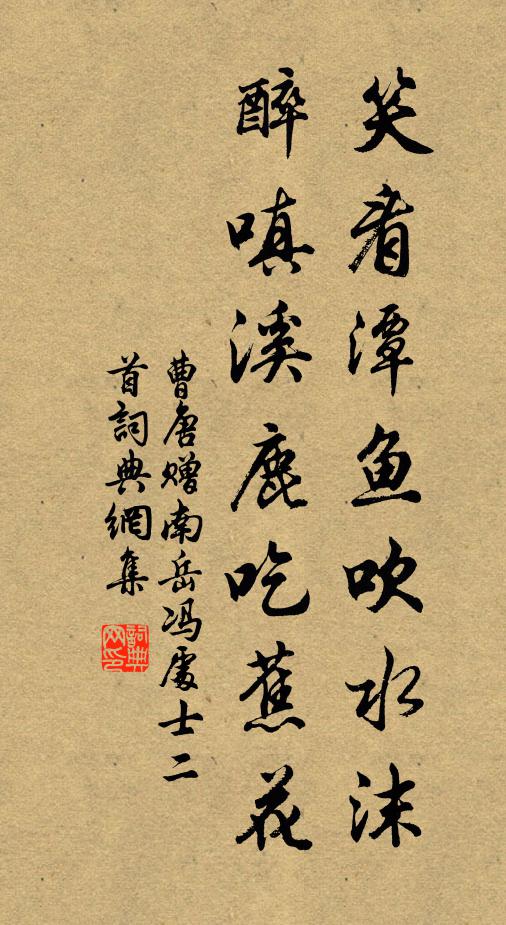 笑看潭鱼吹水沫
醉嗔溪鹿吃蕉花
曹唐赠南岳冯處士二
首詞典網集
詞典
网印